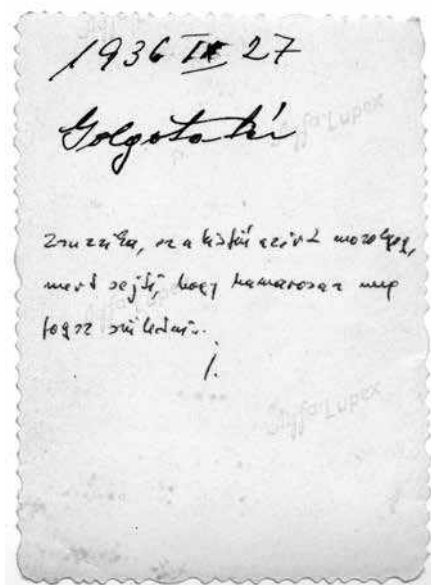 1936 IX 27
Agfa-Lupex
Golgota tér
Zsuzsika, ez a kisfiú azért mosolyog,
mert sejti, hogy hamarosan meg
fogsz születni.
J.
Agfa-Lupex